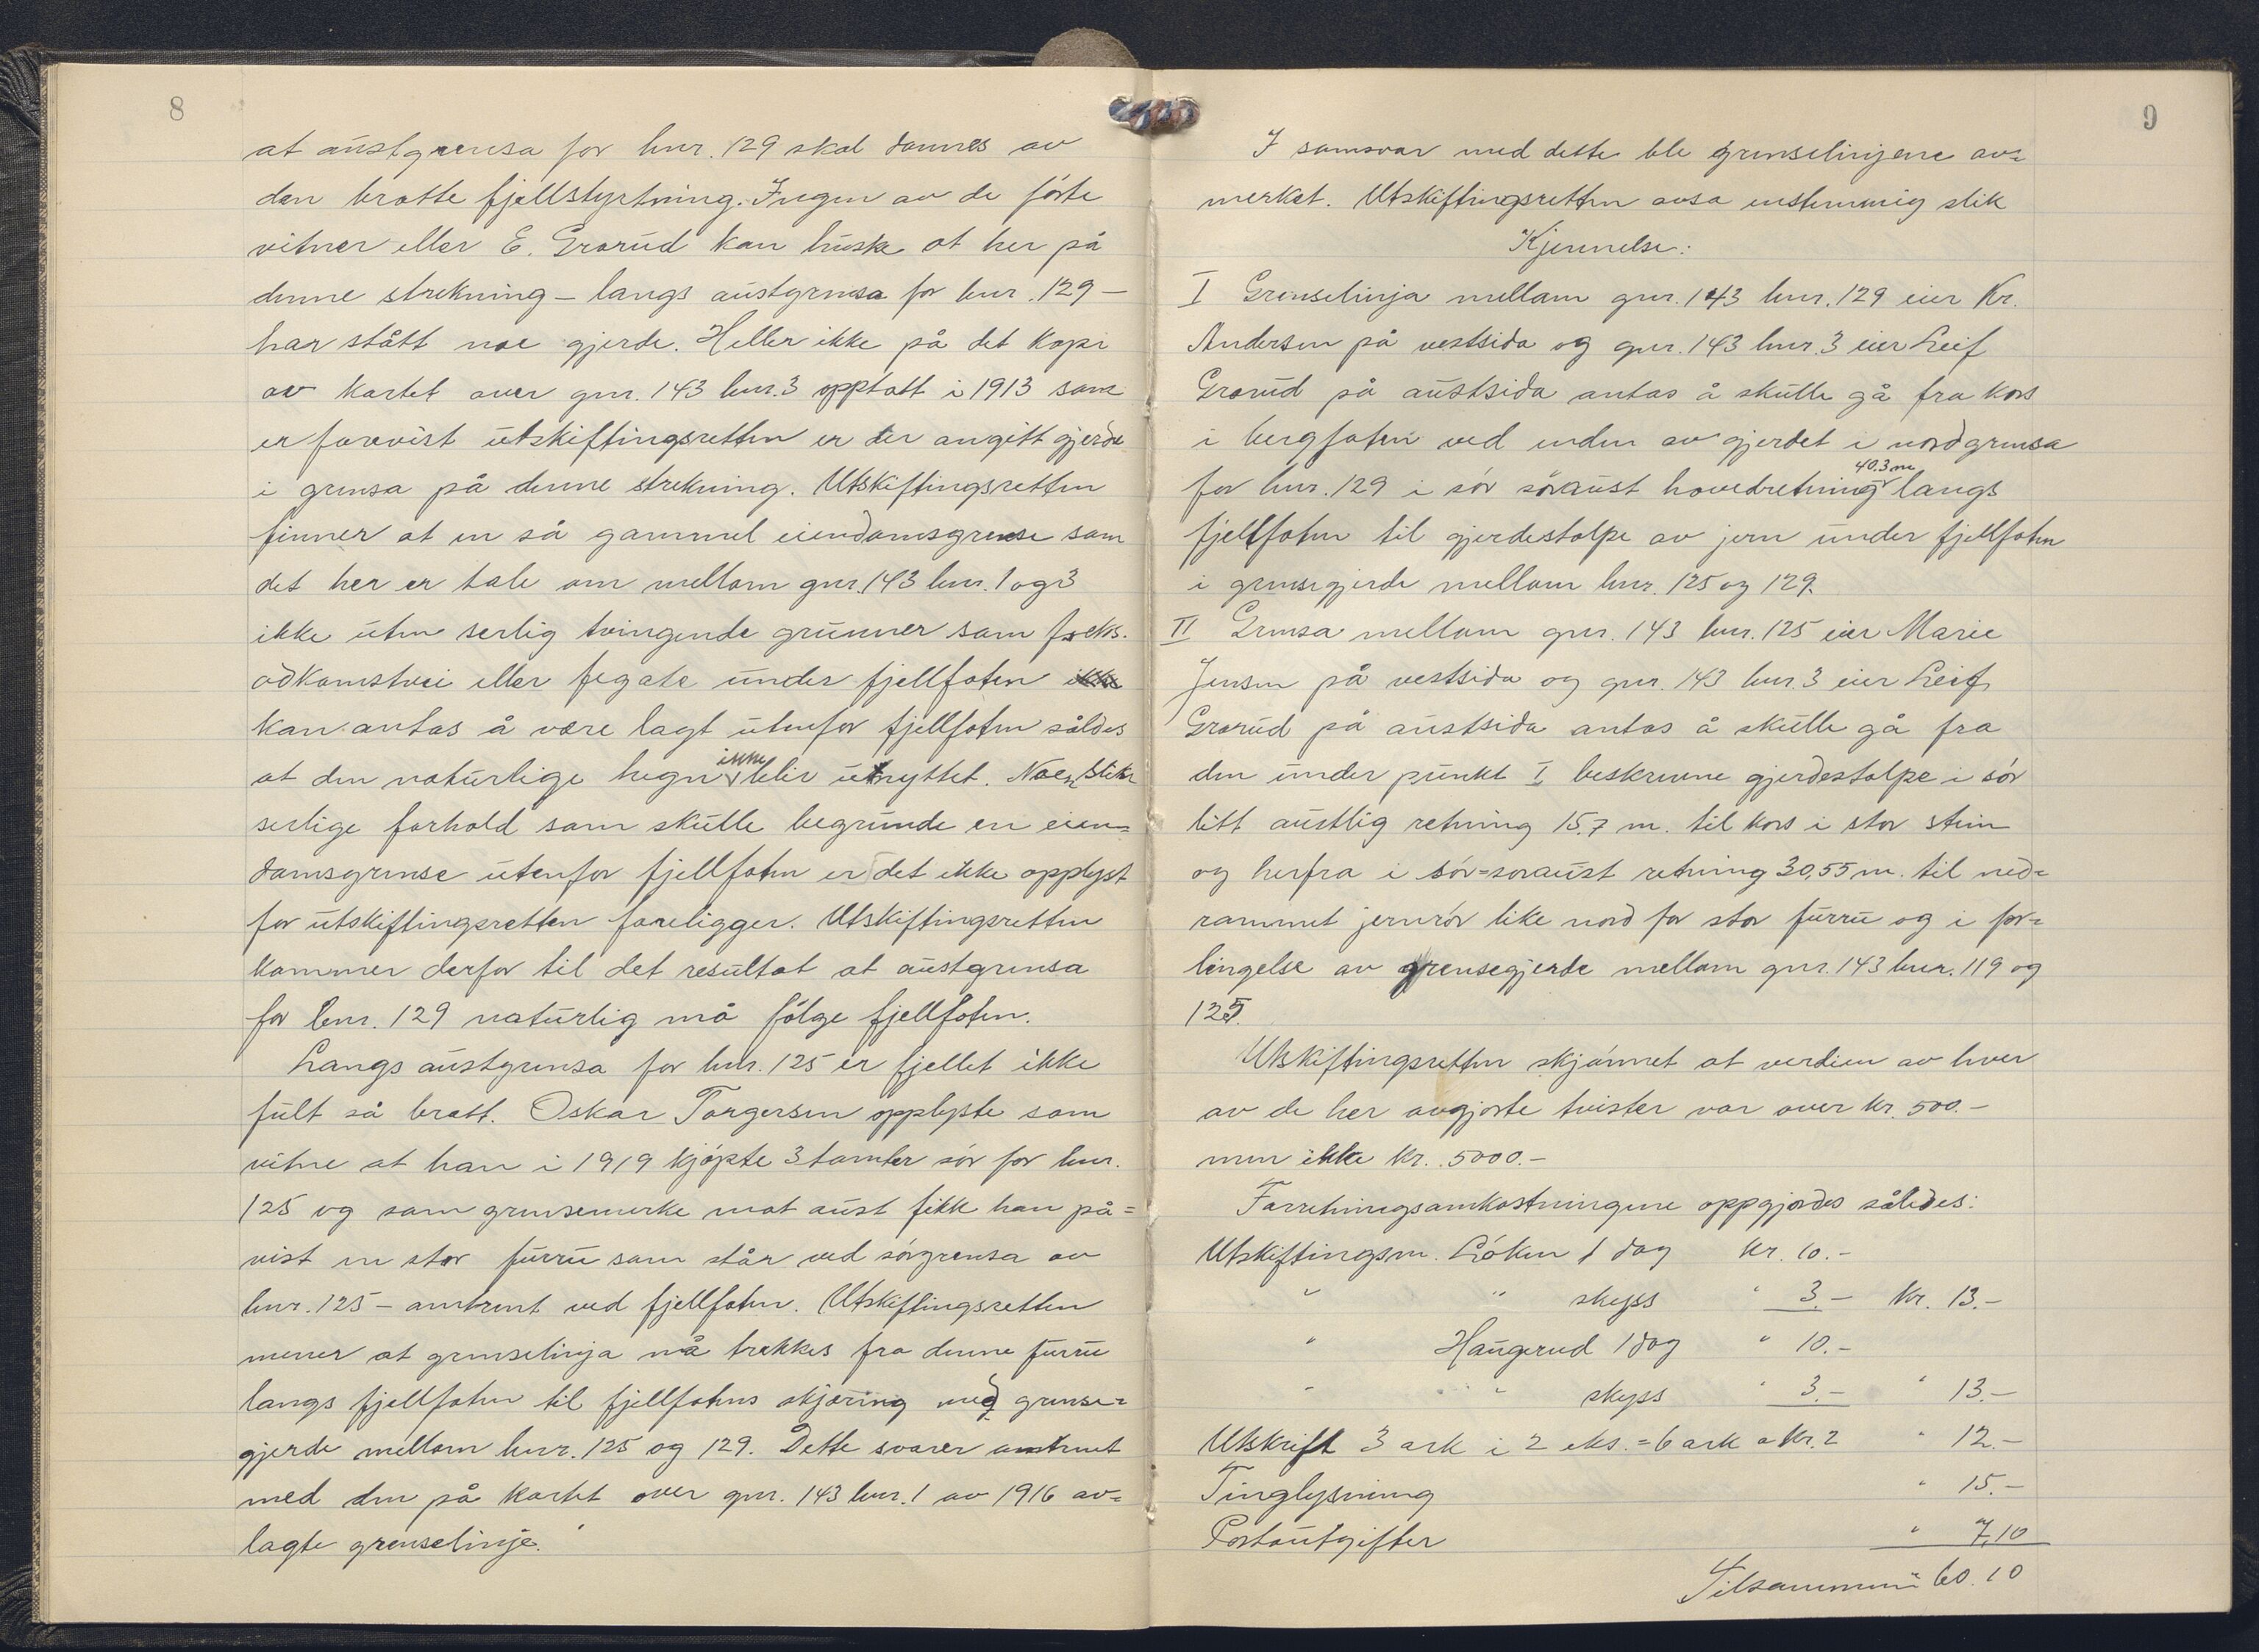 8
at austgrensa for bnr. 129 skal dannes av
den bratte fjellstyrtning. Ingen av de förte
vitner eller E. Grorud kan huske at her på
denne strekning – langs austgrensa for bnr. 129 –
har stått noe gjerde. Heller ikke på det kopi
av kartet over gnr. 143 bnr. 3 opptatt i 1913 som
er forevist utskiftingsretten er der angitt gjerde
i grensa på denne strekning. Utskiftingsretten
finner at en så gammel eiendomsgrense som
det her er tale om mellom gnr. 143 bnr. 1 og 3
ikke uten serlig tvingende grunner som f. eks.
adkomstvei eller fegate under fjellfoten ikke
kan antas å være lagt utenfor fjellfoten således
at den naturlige hegn ikke blir utnyttet. Noen slike
serlige forhold som skulle begrunde en eien=
domsgrense utenfor fjellfoten er det ikke opplyst
for utskiftingsretten foreligger. Utskiftingsretten
kommer derfor til det resultat at austgrensa
for bnr. 129 naturlig må fölge fjellfoten.
Langs austgrensa for bnr. 125 er fjellet ikke
fult så bratt. Oskar Torgersen opplyste som
vitne at han i 1919 kjöpte 3 tomter sör for bnr.
125 og som grensemerke mot aust fikk han på=
vist en stor furru som står ved sörgrensa av
bnr. 125 – omtrent ved fjellfoten. Utskiftingsretten
mener at grenselinja må trekkes fra denne furru
langs fjellfoten til fjellfotens skjæring med grense=
gjerde mellom bnr. 125 og 129. Dette svarer omtrent
med den på kartet over gnr. 143 bnr. 1 av 1916 av=
lagte grenselinje.
9
I samsvar med dette ble grenselinjene av=
merket. Utskiftingsretten avsa enstemmig slik
Kjennelse:
I Grenselinja mellom gnr. 143 bnr. 129 eier Kr.
Andersen på vestsida og gnr. 143 bnr. 3 eier Leif
Grorud på austsida antas å skulle gå fra kors
i bergfoten ved enden av gjerdet i nordgrensa
for bnr. 129 i sör söraust hovedretning 40.3 m langs
fjellfoten til gjerdestolpe av jern under fjellfoten
i grensegjerde mellom bnr. 125 og 129.
II Grensa mellom gnr. 143 bnr. 125 eier Marie
Jensen på vestsida og gnr. 143 bnr. 3 eier Leif
Grorud på austsida antas å skulle gå fra
den under punkt I beskrevne gjerdestolpe i sör
litt austlig retning 15.7 m. til kors i stor stein
og herfra i sör=soraust retning 30,55 m. til ned=
rammet jernrör like nord for stor furru og i for=
lengelse av grensegjerde mellom gnr. 143 bnr. 119 og
125.
Utskiftingsretten skjönnet at verdien av hver
av de her avgjorte tvister var over kr. 500.–
men ikke kr. 5000.–
Forretningsomkostningene oppgjordes således:
Utskiftingsm. Löken 1 dag kr. 10.–
" " skyss " 3.– kr. 13.–
" Haugerud 1 dag " 10.–
" " skyss " 3.– " 13.–
Utskrift 3 ark i 2 eks. = 6 ark a kr. 2 " 12.–
Tinglysning " 15.–
Portoutgifter " 7,10
Tilsammen 60.10